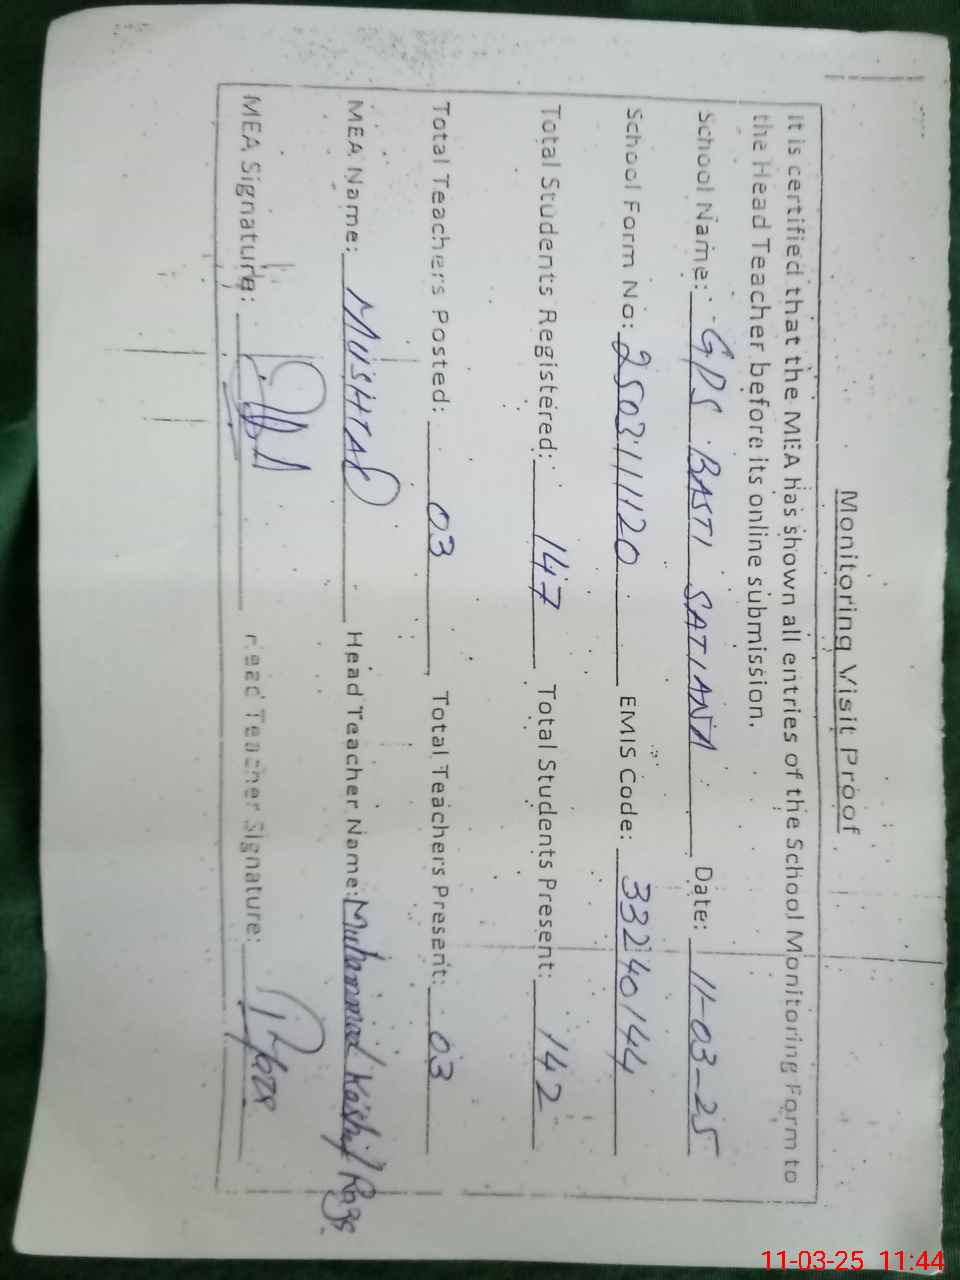 Monitoring Visit Proof
It is certified that the MEA has shown all entries of the School Monitoring Form to
the Head Teacher before its online submission.
School Name: GPS BASTI SATIANA Date: 11-03-25
School Form No: 2503111120 EMIS Code: 33240144
Total Students Registered: 147 Total Students Present: 142
Total Teachers Posted: 03 Total Teachers Present: 03
MEA Name: MUSHTAQ Head Teacher Name: Muhammad Kashif Raza
MEA Signature: Head Teacher Signature:
11-03-25 11:44